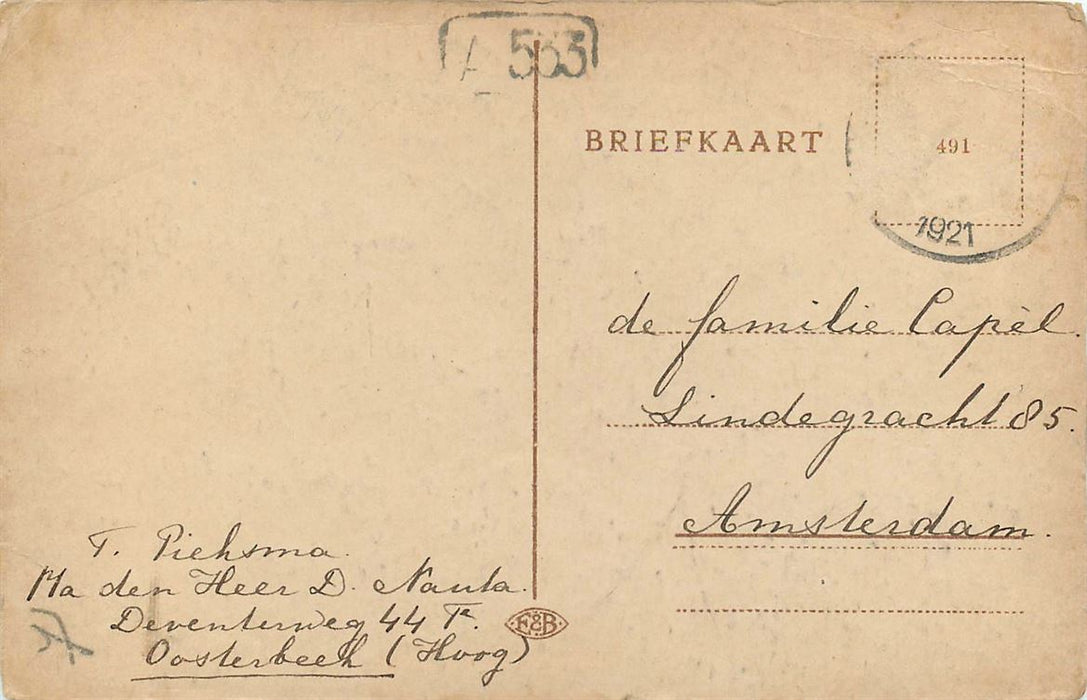 A 533
BRIEFKAART
491
1921
de familie Capèl.
Lindegracht 85.
Amsterdam.
T. Piehsma.
den Heer D. Nauta.
Deventerweg 44
Oosterbeek (Hoog)
E&B